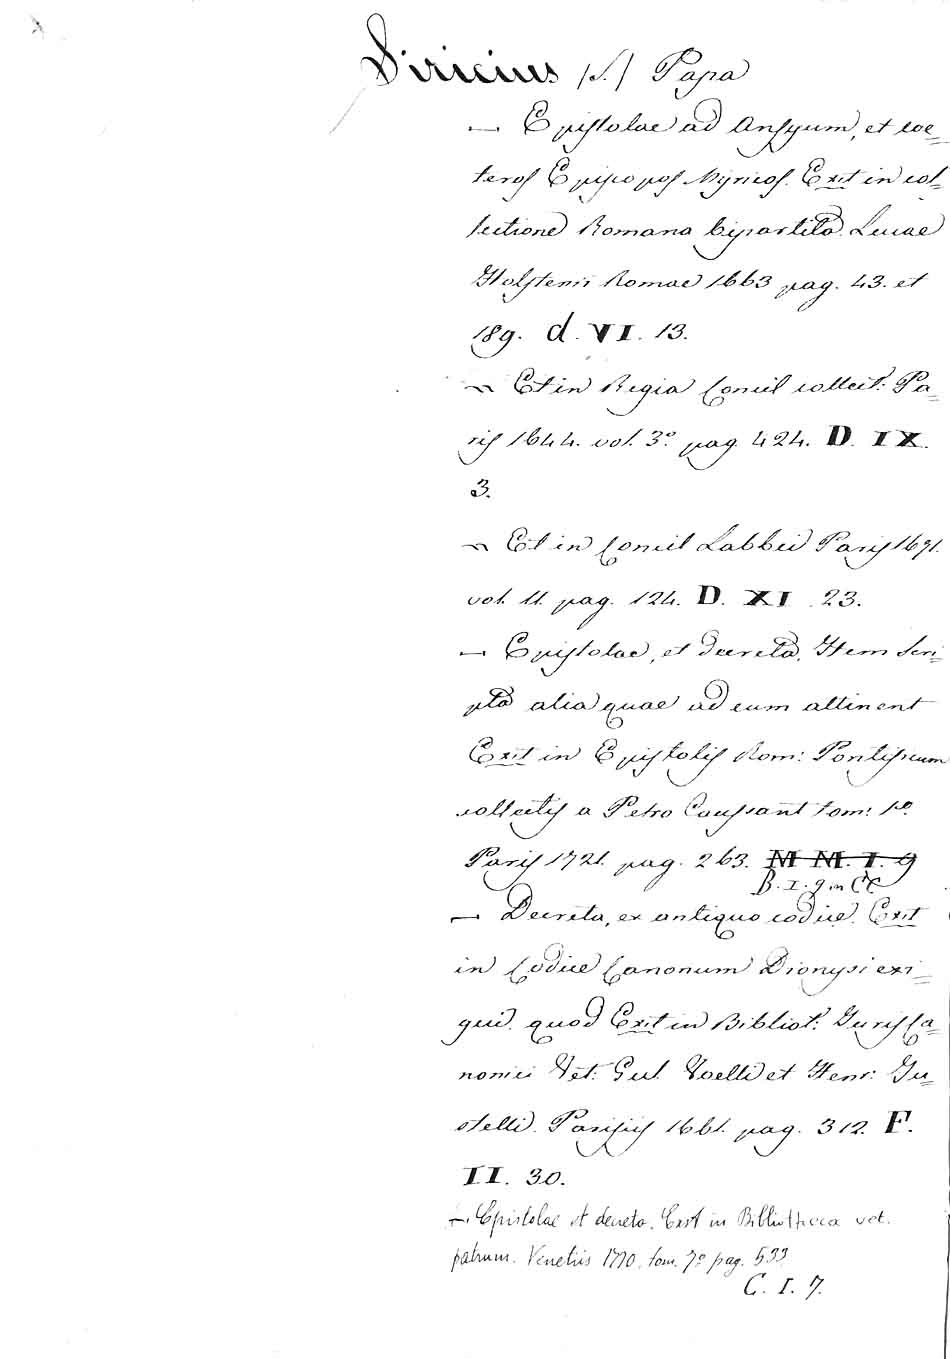 Siricius (S.) Papa
— Epistolae ad Ansyum, et coe=
teros Episcopos Illyricos. Exit in col=
lectione Romana bipartita Lucae
Holstenii Romae 1663 pag. 43. et
189. d. VI. 13.
— Et in Regia Concil collect: Pa=
ris 1644. vol. 3º pag. 424. D. IX.
3.
— Et in Concil Labbei Paris 1671.
vol. 11. pag. 124. D. XI. 23.
— Epistolae, et decreta. Item scri=
pta alia quae ad eum attinent
Exit in Epistolis Rom: Pontificum
collectis a Petro Coussant tom: 1º
Paris 1721. pag. 263. M M. I. 9
B. I. 9 in CC
— Decreta, ex antiquo codice. Exit
in Codice Canonum Dionysi exi=
gui. quod Exit in Bibliot: Juris Ca=
nonici Vet: Gul. Voelli et Henr: Ju=
stelli. Parisiis 1661. pag. 312. F.
II. 30.
— Epistolae et decreta. Exst in Bibliotheca vet.
patrum. Venetiis 1770. tom. 7º pag. 533
C. I. 7.